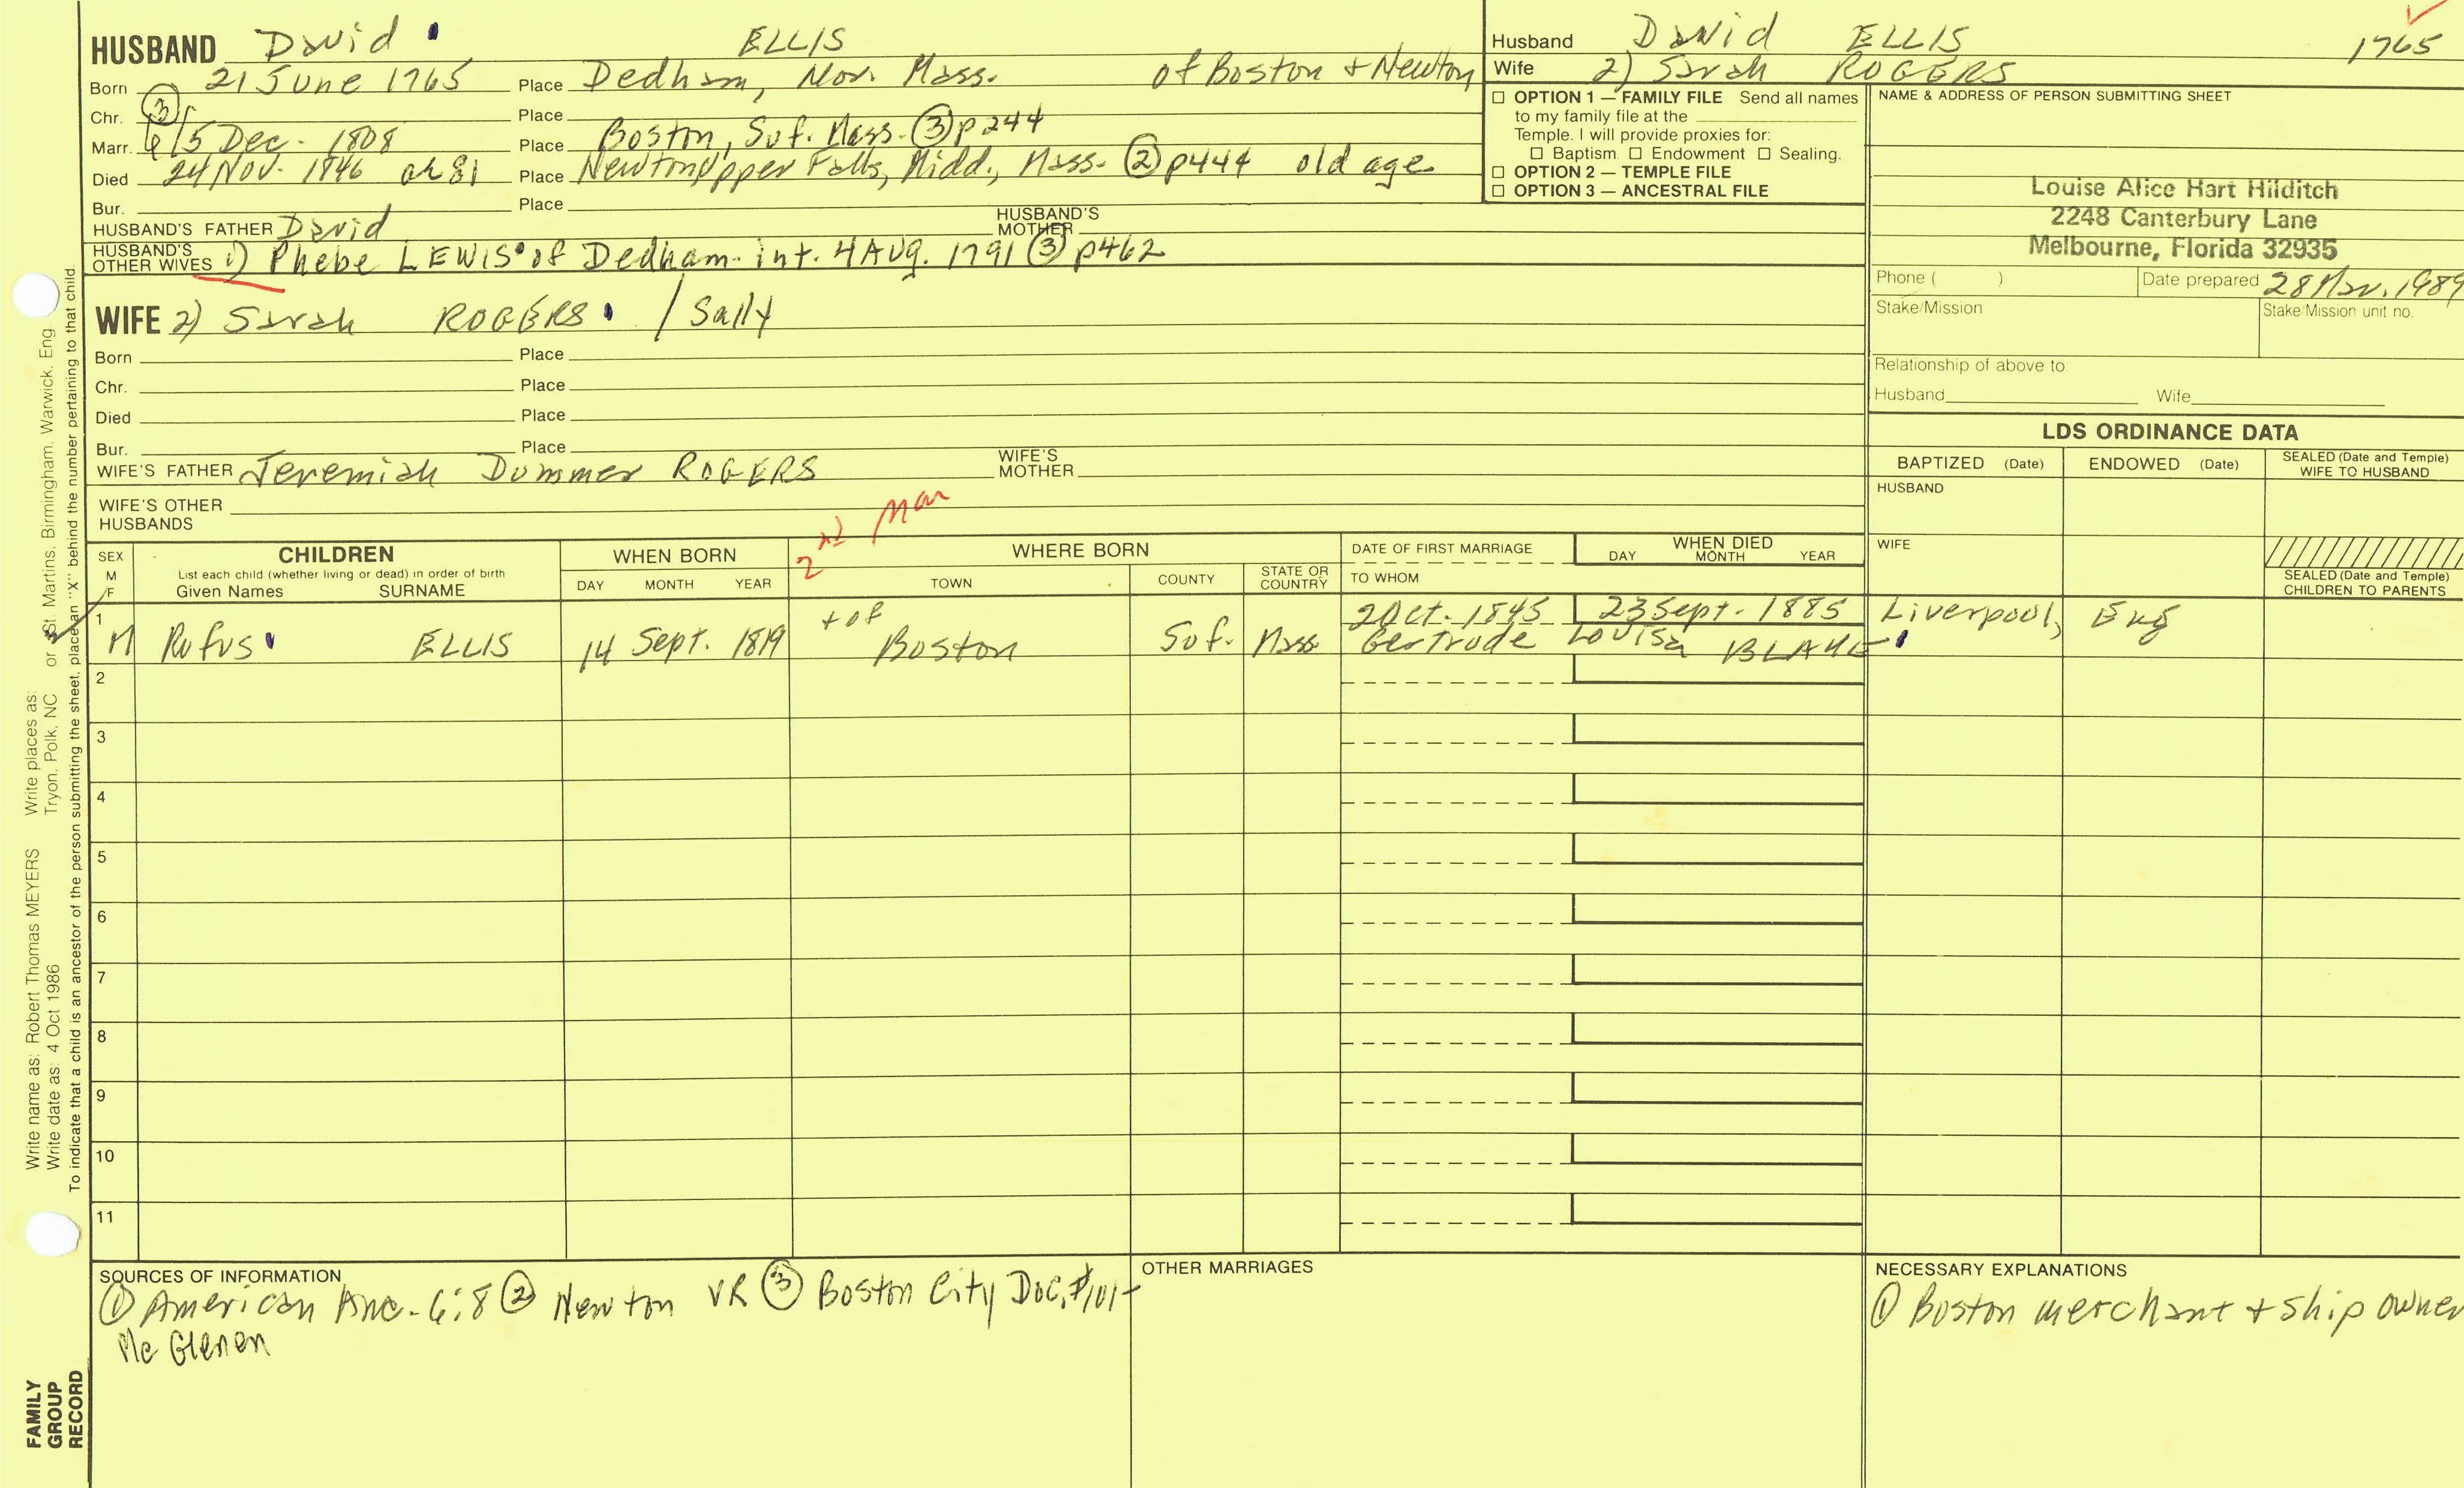 HUSBAND David ELLIS
Born 21 June 1765 Place Dedham, Nor. Mass. of Boston + Newton
Chr. ③ Place
Marr. 6/5 Dec. 1808 Place Boston, Suf. Mass. ③ p244
Died 24 Nov. 1846 ae 81 Place Newton Upper Falls, Midd., Mass. ② p444 old age
Bur. Place
HUSBAND'S FATHER David HUSBAND'S MOTHER
HUSBAND'S OTHER WIVES 1) Phebe LEWIS of Dedham. int. 4 Aug. 1791 ③ p462
WIFE 2) Sarah ROGERS / Sally
Born Place
Chr. Place
Died Place
Bur. Place
WIFE'S FATHER Jeremiah Dummer ROGERS WIFE'S MOTHER
WIFE'S OTHER HUSBANDS
2nd Mar
Husband David ELLIS 1765
Wife 2) Sarah ROGERS
☐ OPTION 1 — FAMILY FILE Send all names
to my family file at the
Temple. I will provide proxies for:
☐ Baptism ☐ Endowment ☐ Sealing.
☐ OPTION 2 — TEMPLE FILE
☐ OPTION 3 — ANCESTRAL FILE
NAME & ADDRESS OF PERSON SUBMITTING SHEET
Louise Alice Hart Hilditch
2248 Canterbury Lane
Melbourne, Florida 32935
Phone ( ) Date prepared 28 Mar. 1989
Stake/Mission Stake/Mission unit no.
Relationship of above to
Husband Wife
LDS ORDINANCE DATA
BAPTIZED (Date) ENDOWED (Date) SEALED (Date and Temple) WIFE TO HUSBAND
HUSBAND
WIFE
SEALED (Date and Temple) CHILDREN TO PARENTS
SEX M/F CHILDREN WHEN BORN WHERE BORN DATE OF FIRST MARRIAGE WHEN DIED
List each child (whether living or dead) in order of birth DAY MONTH YEAR TOWN COUNTY STATE OR COUNTRY TO WHOM DAY MONTH YEAR
Given Names SURNAME
1 + of 2 Oct. 1845 23 Sept. 1885 Liverpool, Eng
M Rufus ELLIS 14 Sept. 1819 Boston Suf. Mass Gertrude Louisa BLAKE
2
3
4
5
6
7
8
9
10
11
SOURCES OF INFORMATION
① American Anc. 6:8 ② Newton VR ③ Boston City Doc. #101-
Mc Glenen
OTHER MARRIAGES
NECESSARY EXPLANATIONS
① Boston merchant + ship owner
Write name as: Robert Thomas MEYERS Write places as:
Write date as: 4 Oct 1986 Tryon, Polk, NC or St. Martins, Birmingham, Warwick, Eng
To indicate that a child is an ancestor of the person submitting the sheet, place an "X" behind the number pertaining to that child.
FAMILY
GROUP
RECORD